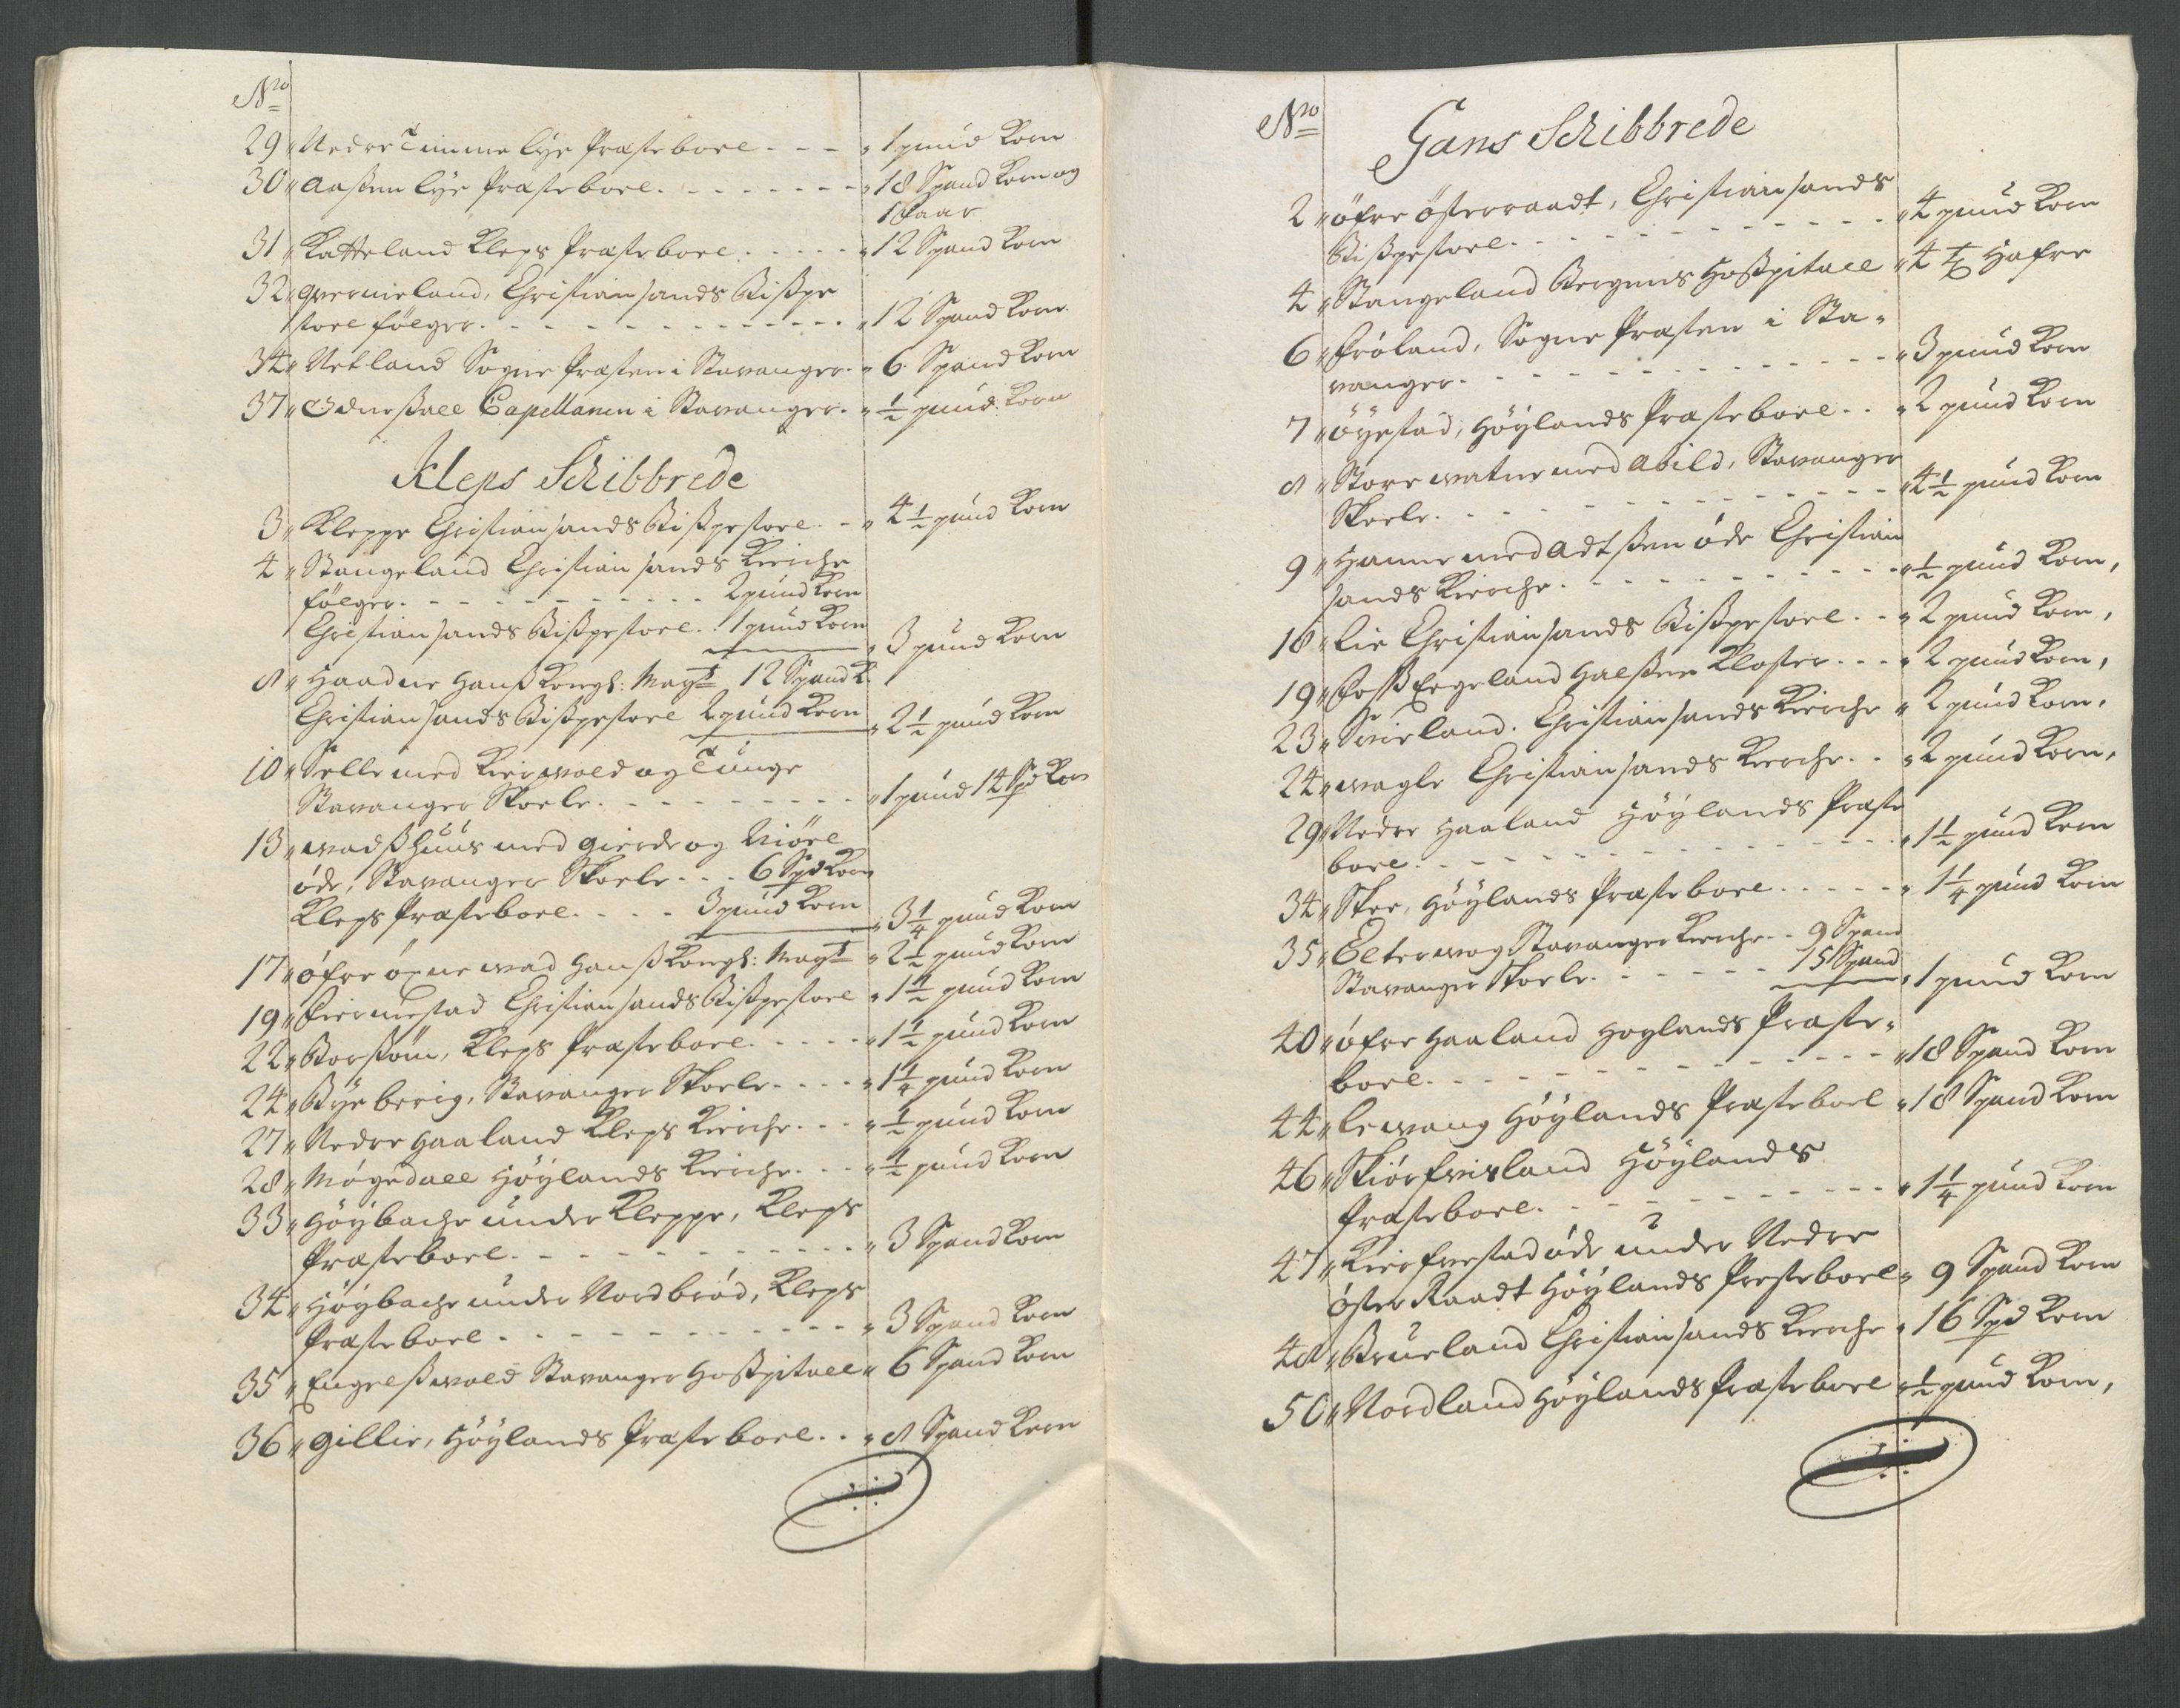 No
29 " Nedre Timme lye Præsteboel - - - " 1 pund Korn
30 " Aassen lye Præsteboel - - - - " 18 Spand Korn og
1 faar
31 " Katteland Kleps Præsteboel - - - - " 12 Spand Korn
32 " Qverneland, Christiansands Bispe
stoel følger - - - - " 12 Spand Korn
34 " Netland Sogne Præsten i Stavanger - " 6 Spand Korn
37 " Capellanen i Stavanger - " ½ pund Korn
Kleps Schibbrede
3 " Kleppe Christiansands Bispestoel - - " 4½ pund Korn
4 " Stangeland Christiansands Kirche
følger - - - - 2 pund Korn
Christiansands Bispestoel - 1 pund Korn " 3 pund Korn
8 " Haadne Hanß Kongl: Mayt 12 Spand K.
Christiansands Bispestoel 2 pund Korn " 2½ pund Korn
10 " Selle med Kirwold og Tunge
Stavanger Skoele - - - - " 1 pund 14 Spd Kor
13 " wadßhuus med gierde og Niøel
øde, Stavanger Skoele - - - 6 Spd Korn
Kleps Præsteboel - - - - 3 pund Korn " 3¼ pund Korn
17 " øfre øxnewad Hanß Kongl: Mayt " 2½ pund Korn
19 " Fiermestad Christiansands Bispestoel " 1½ pund Korn
22 " Borßøm, Kleps Præsteboel - - - - " 1½ pund Korn
24 " Bye berig, Stavanger Skoele - - - - " 1¼ pund Korn
27 " Nedre Haaland Kleps Kirche - - - " ½ pund Korn
28 " Møgedall Höylands Kirche - - - " ½ pund Korn
33 " Höybache under Kleppe, Kleps
Præsteboel - - - - " 3 Spand Korn
34 " Höybache under Nordbrød, Kleps
Præsteboel - - - - " 3 Spand Korn
35 " Engelßwold Stavanger Hospitall " 6 Spand Korn
36 " gillie, Höylands Præsteboel - - " 8 Spand Korn
No
Gans Schibbrede
2 " øfre österraadt, Christiansands
Bispestoel - - - - " 4 pund Korn
4 " Stangeland Bergens Hospitall " 4 Hafre
6 " Frøland, Sogne Præsten i Sta-
vanger - - - - " 3 pund Korn
7 " öyestad, Höylands Præsteboel - - " 2 pund Korn
8 " Store watne med Abild, Stavanger
Skoele - - - - " 4½ pund Korn
9 " Hanne med Adtßen øde Christian
sands Kirche - - - - " ½ pund Korn,
18 " Lie Christiansands Bispestoel - - " 2 pund Korn,
19 " Foss Eegeland Halsnøe Kloster - - - " 2 pund Korn,
23 " Svieland. Christiansands Kirche " 2 pund Korn,
24 " wagle Christiansands Kirche - - " 2 pund Korn,
29 " Nedre Haaland Höylands Præste
boel - - - - " 1½ pund Korn
34 " Skee, Höylands Præsteboel - - - - " 1¼ pund Korn
35 " Elterwog Stavanger Kirche - - 9 Spand
Stavanger Skoele - - - - 15 Spand " 1 pund Korn
40 " øfre Haaland Hoylands Præste-
boel - - - - " 18 Spand Korn
44 " Lewang Höylands Præsteboel " 18 Spand Korn
46 " Skiørfvisland Höylands
Præsteboel - - - - " 1¼ pund Korn
47 " Kierfvestad øde under Nedre
öster Raadt Höylands Presteboel " 9 Spand Korn
48 " Brueland Christiansands Kirche " 16 Spd Korn
50 " Nordland Höylands Præsteboel " ½ pund Korn,